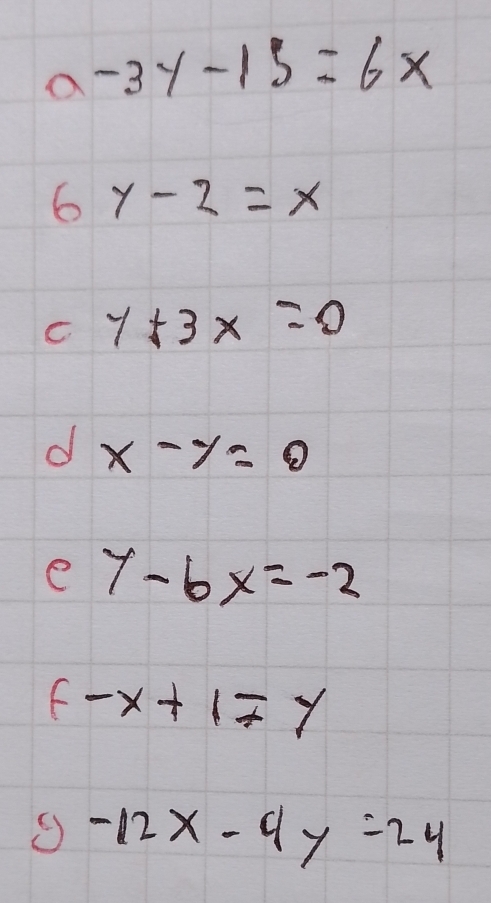 a -3y - 15 = 6x
b y - 2 = x
c y + 3x = 0
d x - y = 0
e y - 6x = -2
f -x + 1 = y
g -12x - 4y = 24